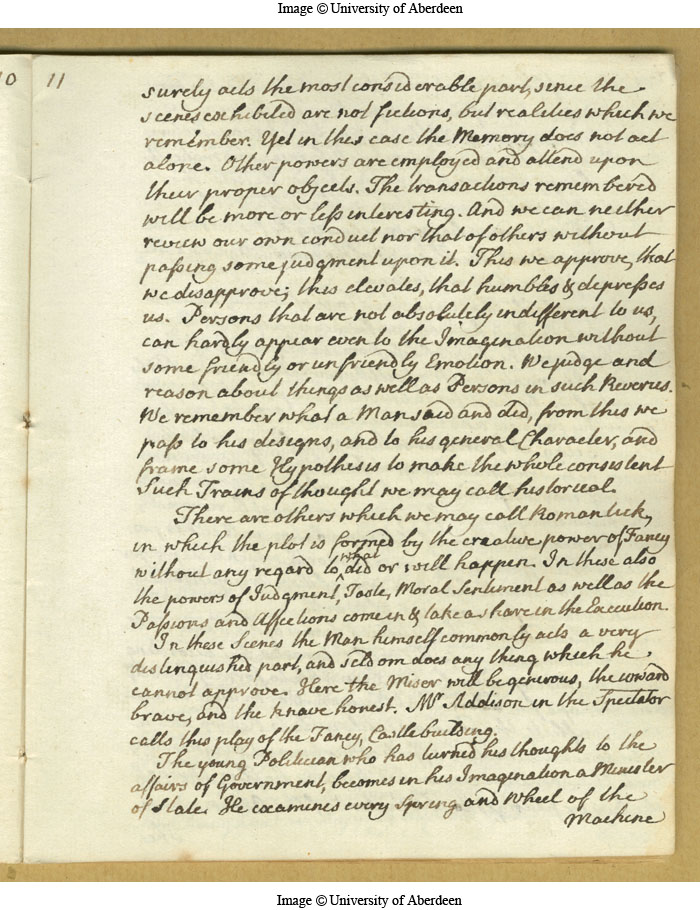 Image © University of Aberdeen
10
11
surely acts the most considerable part, since the
scenes exhibited are not fictions, but realities which we
remember. Yet in this case the Memory does not act
alone. Other powers are employed and attend upon
their proper objects. The transactions remembered
will be more or less interesting. And we can neither
review our own conduct nor that of others without
passing some judgment upon it. This we approve, that
we disapprove; this elevates, that humbles & depresses
us. Persons that are not absolutely indifferent to us,
can hardly appear even to the Imagination without
some friendly or unfriendly Emotion. We judge and
reason about things as well as Persons in such Reveries.
We remember what a Man said and did, from this we
pass to his designs, and to his general Character, and
frame some Hypothesis to make the whole consistent
Such Trains of thought we may call historical.
There are others which we may call Romantick,
in which the plot is formed by the creative power of Fancy
without any regard to what did or will happen. In these also
the powers of Judgment, Taste, Moral Sentiment as well as the
Passions and Affections come in & take a share in the Execution.
In these Scenes the Man himself commonly acts a very
distinguished part, and seldom does any thing which he
cannot approve. Here the Miser will be generous, the coward
brave, and the knave honest. Mr Addison in the Spectator
calls this play of the Fancy, Castle building.
The young Politician who has turned his thoughts to the
affairs of Government, becomes in his Imagination a Minister
of State. He examines every Spring and Wheel of the
Machine
Image © University of Aberdeen